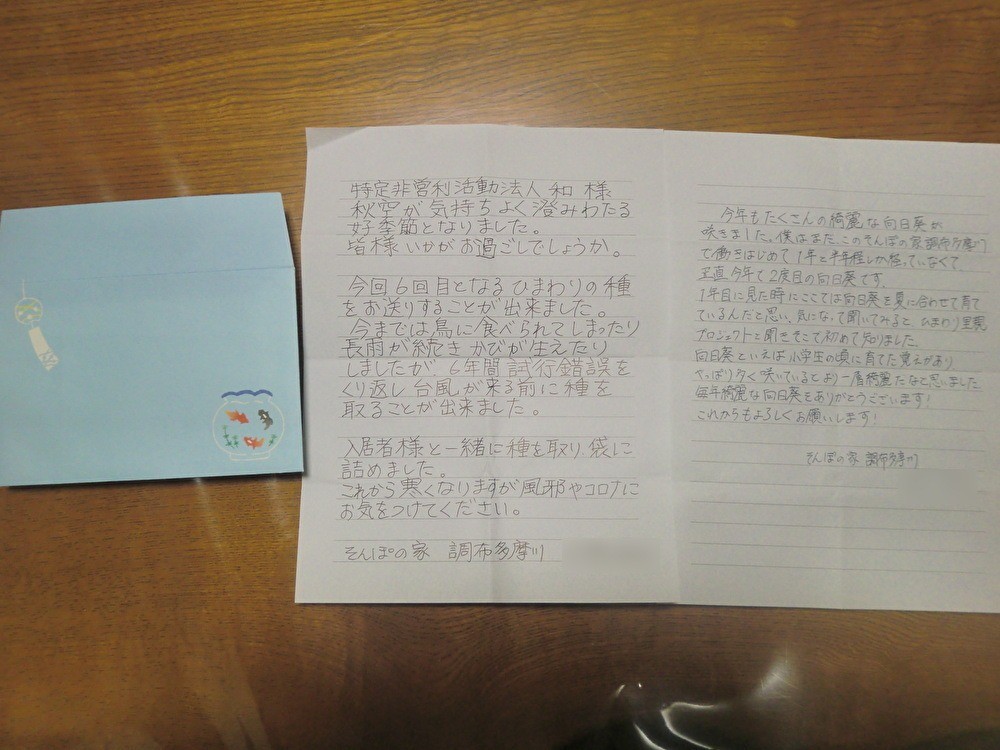 特定非営利活動法人 和 様
秋空が気持ちよく澄みわたる
好季節となりました。
皆様いかがお過ごしでしょうか。
今回6回目となるひまわりの種
をお送りすることが出来ました。
今までは鳥に食べられてしまったり
長雨が続きかびが生えたり
しましたが、6年間試行錯誤を
くり返し台風が来る前に種を
取ることが出来ました。
入居者様と一緒に種を取り、袋に
詰めました。
これから寒くなりますが風邪やコロナに
お気をつけてください。
そんぽの家 調布多摩川
今年もたくさんの綺麗な向日葵が
咲きました。僕はまだ、このそんぽの家調布多摩川
で働きはじめて1年と半年程しか経っていなくて、
正直今年で2度目の向日葵です。
1年目に見た時にここでは向日葵を夏に合わせて育て
ているんだと思い、気になって聞いてみると、ひまわり里親
プロジェクトと聞きそこで初めて知りました。
向日葵といえば小学生の頃に育てた覚えがあり
やっぱり多く咲いているとより一層綺麗だなと思いました
毎年綺麗な向日葵をありがとうございます!
これからもよろしくお願いします!
そんぽの家 調布多摩川